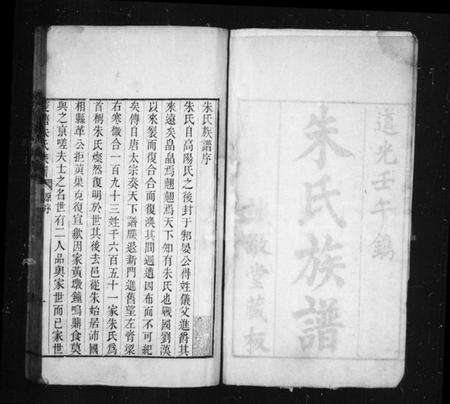 道光壬午鐫
朱氏族譜
堂藏板
朱氏族譜序
朱氏自高陽氏之後封于邾晏公得姓儀父進爵其
來遠矣晶晶焉翹翹焉天下知有朱氏也戰國劉漢
以來裂而復合合而復渙其間過遺因布而不可紀
矣傳自唐太宗奏天下譜牒退新門進舊望左膏梁
右寒微合一百九十三姓千六百五十一家朱氏為
首桐朱氏燦然復明於世其後去邑從朱始居沛國
相縣革公拒黃巢克復宣歙因家黃墩鐘鳴鼎食莫
與之京嗟夫士之名世有二人品與家世而已家世